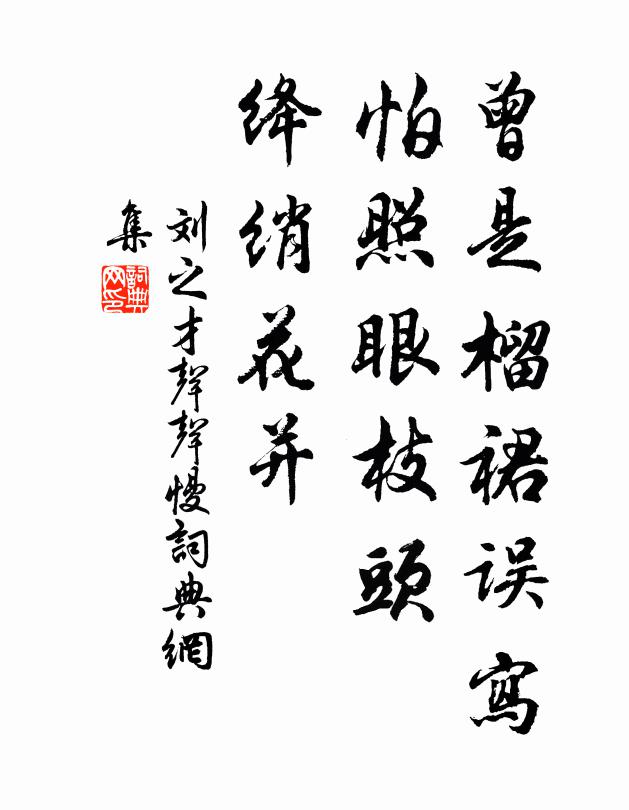 曾是榴裙误寫
怕照眼枝頭
绛绡花并
刘之才聲聲慢詞典網
集
詞典
网印